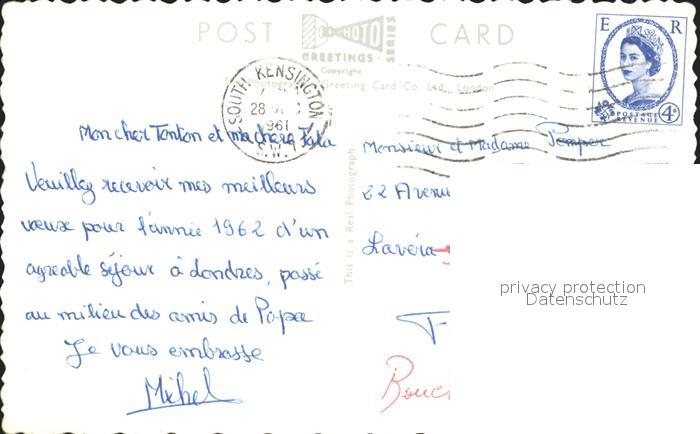 POST CARD
PHOTO
GREETINGS
SERIES
Copyright
Photographic Greeting Card Co. Ltd., London
E R
POSTAGE
REVENUE
4D
SOUTH KENSINGTON
28
1961
S.W.
This is a Real Photograph
Mon cher Tonton et ma chère Tata
Veuillez recevoir mes meilleurs
vœux pour l'année 1962 d'un
agreable séjour à Londres, passé
au milieu des amis de Papa
Je vous embrasse
Michel
Monsieur et Madame Pomper
22 Avenu
Lavéra
F
Bouc
privacy protection
Datenschutz